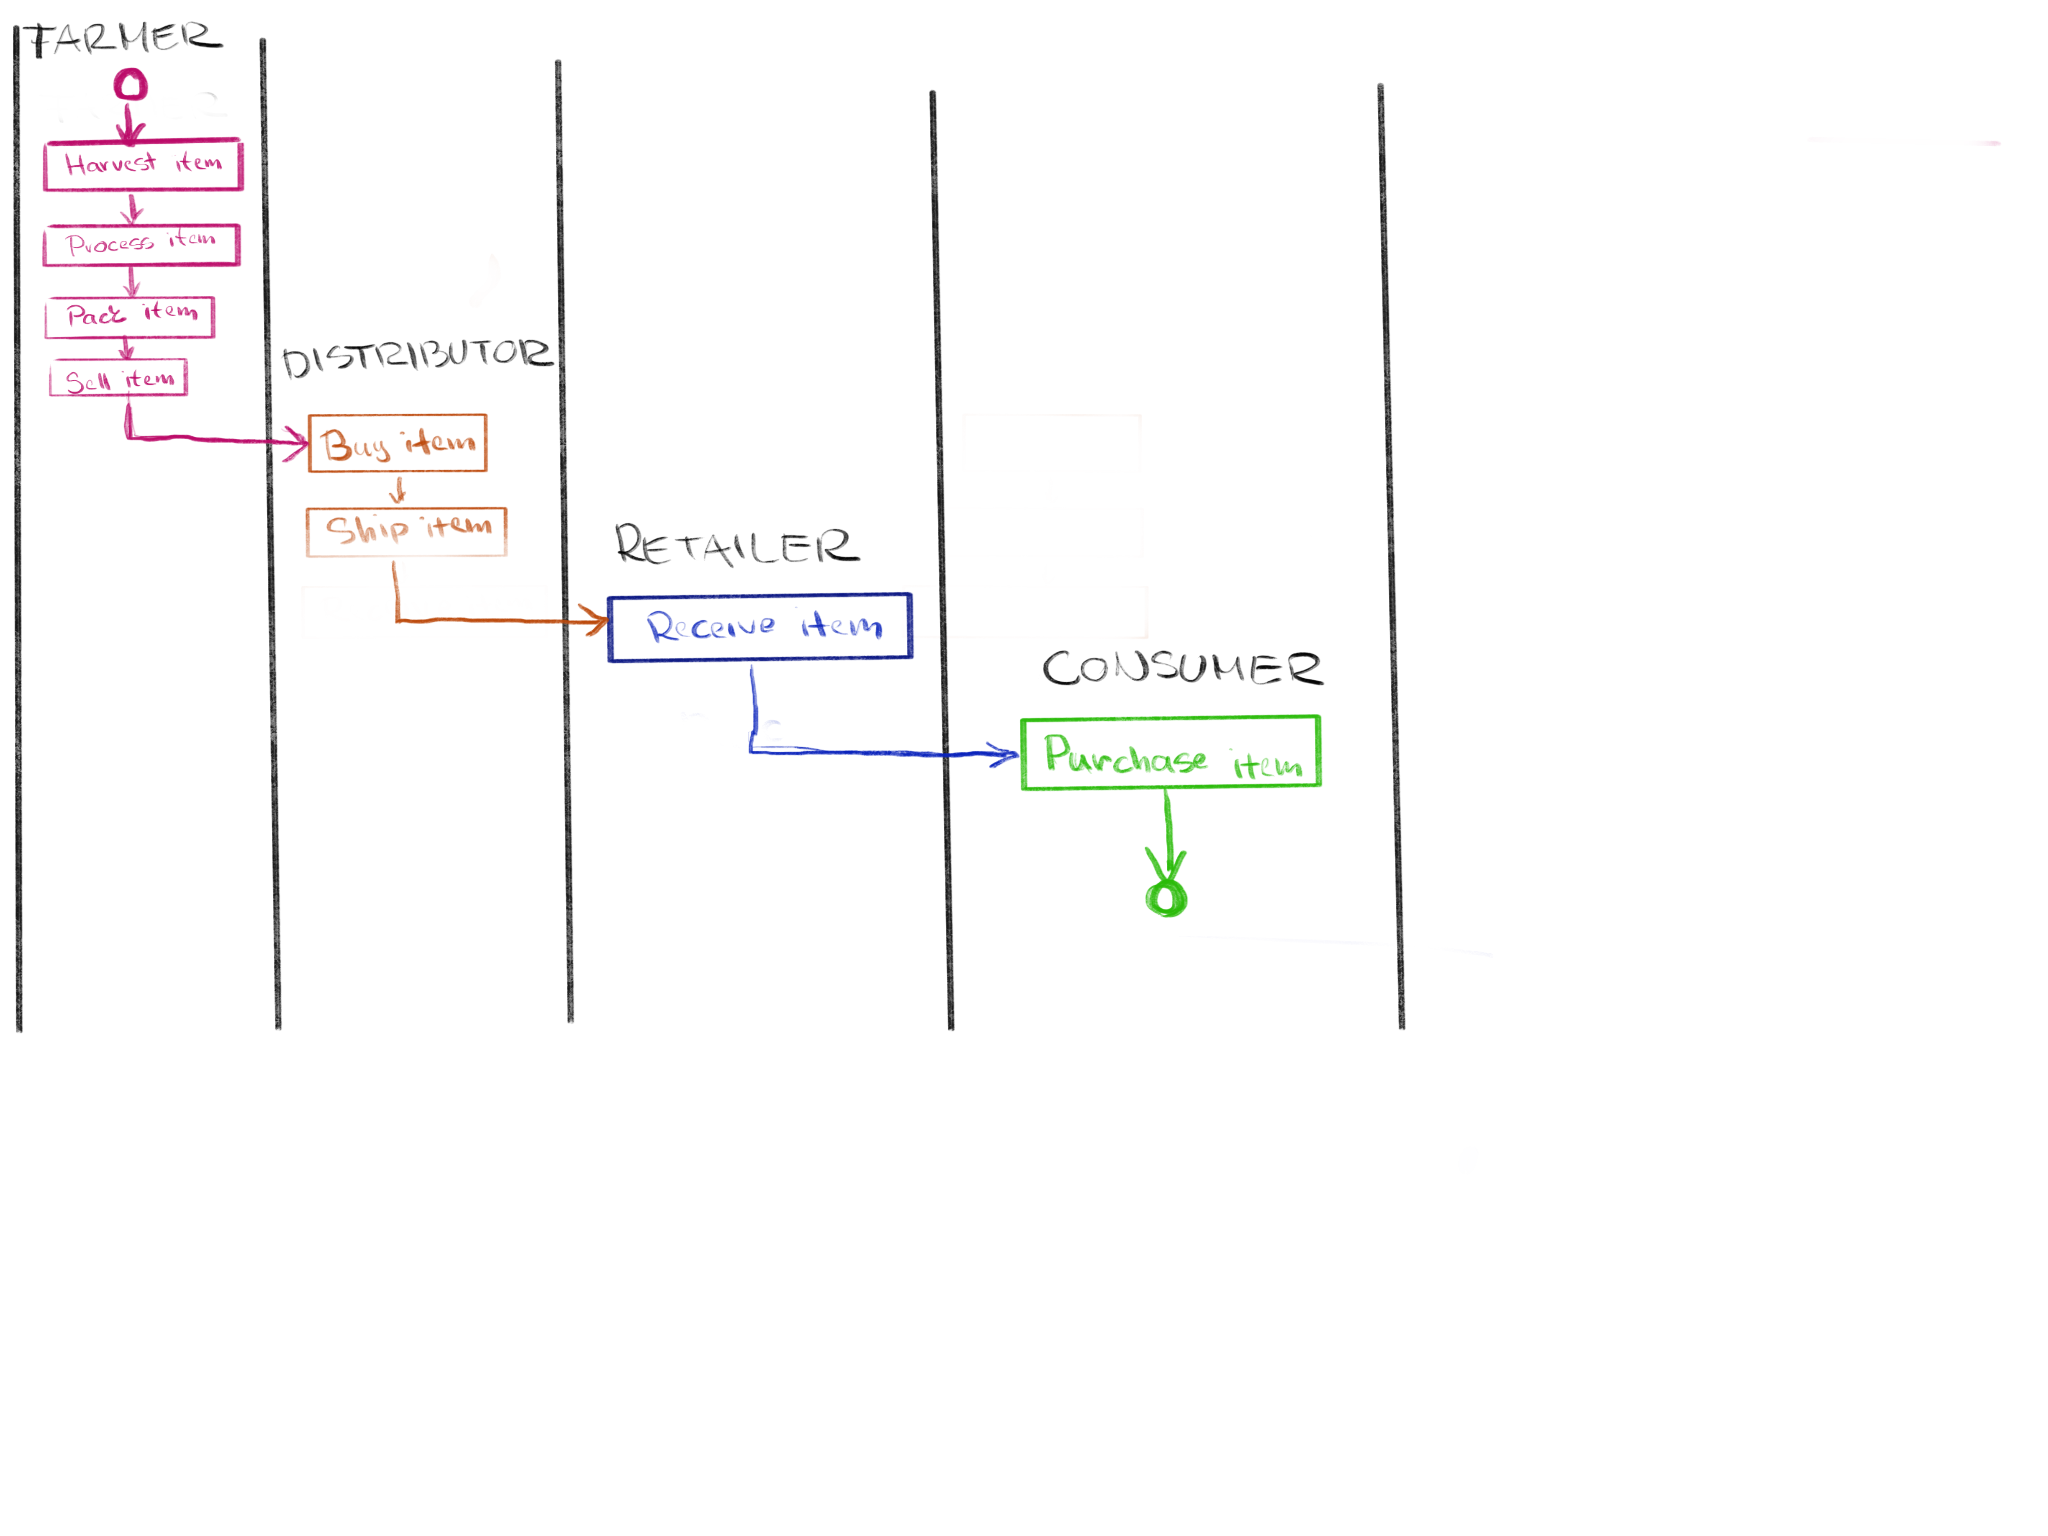 FARMER
Harvest item
Process item
Pack item
Sell item
DISTRIBUTOR
Buy item
Ship item
RETAILER
Receive item
CONSUMER
Purchase item